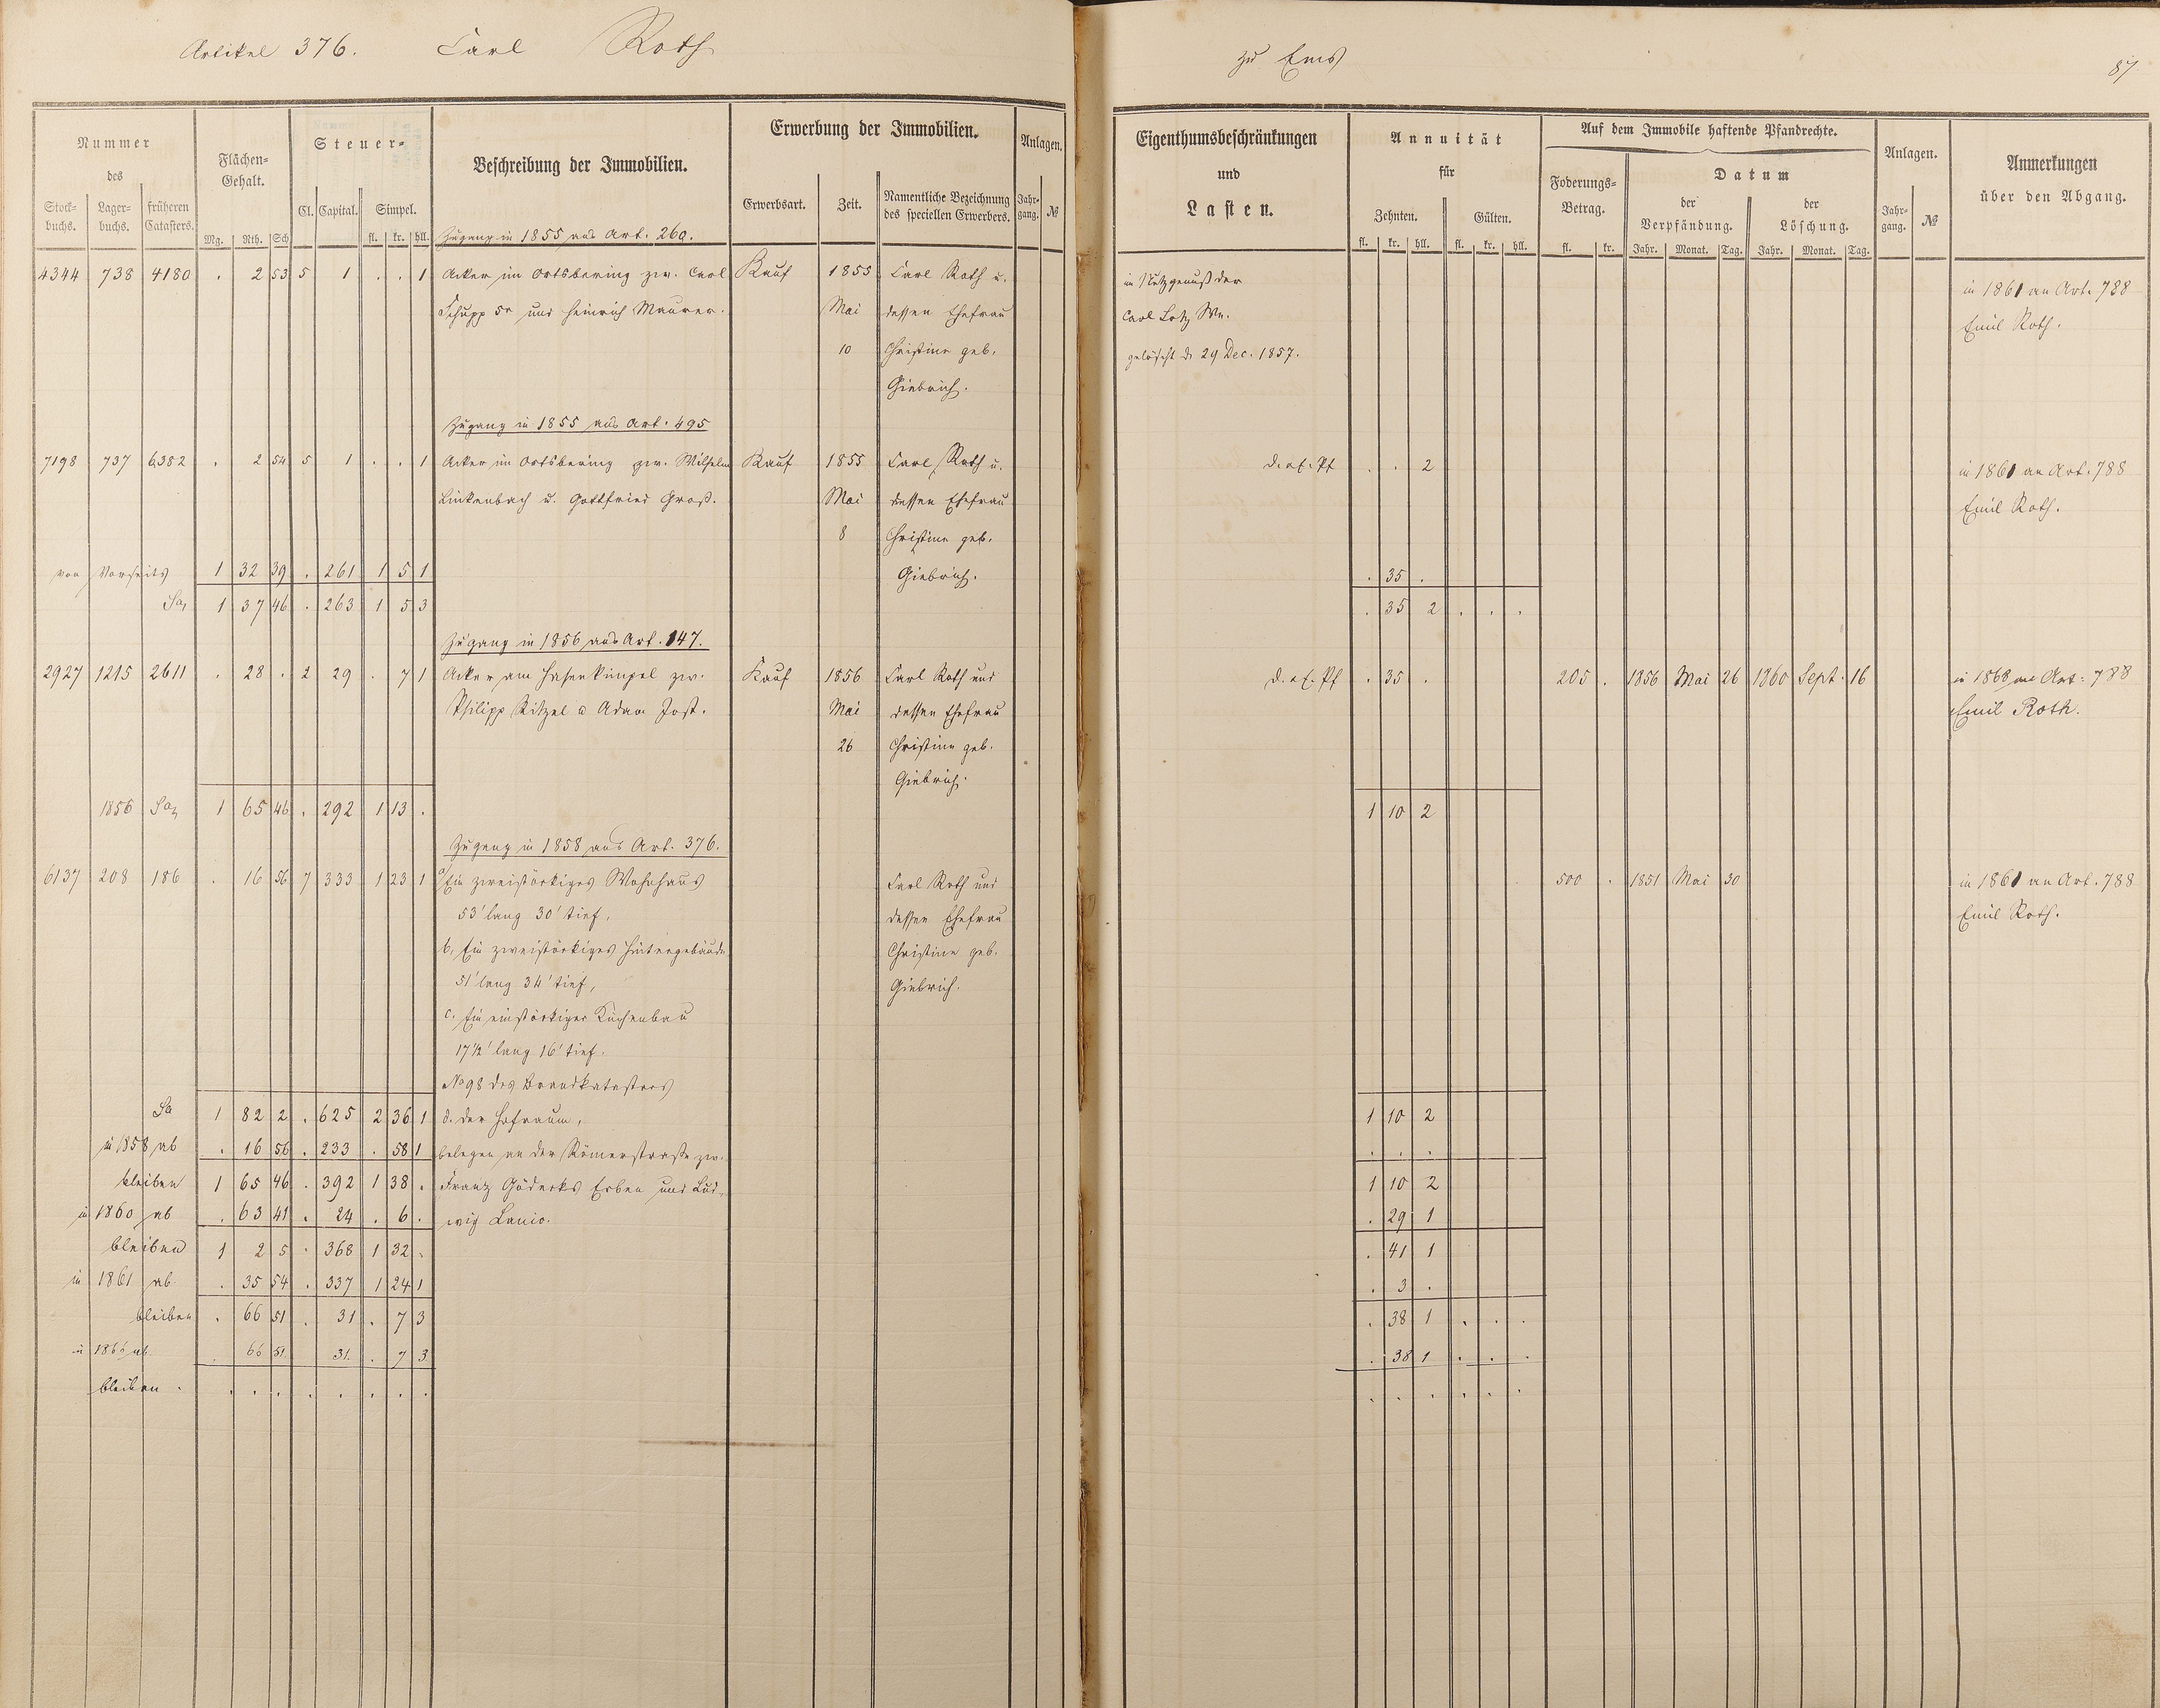 Artikel 376. Carl Roth
zu Ems
87
Nummer des
Stock-buchs. Lager-buchs. früheren Catasters.
Flächen-Gehalt.
Mg. Rth. Sch
Steuer-
Cl. Capital. Simpel.
fl. kr. hll.
Beschreibung der Immobilien.
Erwerbung der Immobilien.
Erwerbsart. Zeit. Namentliche Bezeichnung des speciellen Erwerbers.
Anlagen.
Jahr-gang. №
Eigenthumsbeschränkungen
und
Lasten.
Annuität
für
Zehnten. Gülten.
fl. kr. hll. fl. kr. hll.
Auf dem Immobile haftende Pfandrechte.
Foderungs-Betrag.
fl. kr.
Datum
der Verpfändung. der Löschung.
Jahr. Monat. Tag. Jahr. Monat. Tag.
Anlagen.
Jahr-gang. №
Anmerkungen
über den Abgang.
Zugang in 1855 aus Art. 260.
4344 738 4180 . 2 53 5 1 . . 1 Acker im Ortsbering zw. Carl Kauf 1855 Carl Roth u.
Schupp 5r und Heinrich Maurer. Mai dessen Ehefrau
10 Christine geb.
Giebrich.
im Nutzgenuß der
Carl Lotz We.
gelöscht d. 29 Dec. 1857.
in 1861 an Art. 788
Emil Roth.
Zugang in 1855 aus Art. 495
7198 737 6382 . 2 54 5 1 . . 1 Acker im Ortsbering zw. Wilhelm Kauf 1855 Carl Roth u.
Linkenbach u. Gottfried Groß. Mai dessen Ehefrau
8 Christine geb.
Giebrich.
d. . . 2
in 1861 an Art. 788
Emil Roth.
von Vorseits 1 32 39 . 261 1 5 1 . 35 .
Sa. 1 37 46 . 263 1 5 3 . 35 2 . . .
Zugang in 1856 aus Art. 147.
2927 1215 2611 . 28 . 2 29 . 7 1 Acker am Hasenkümpel zw. Kauf 1856 Carl Roth und
Philipp Kitzel u Adam Jost. Mai dessen Ehefrau
26 Christine geb.
Giebrich.
d. . 35 . 205 . 1856 Mai 26 1860 Sept. 16
in 1868 an Art. 788
Emil Roth.
1856 Sa. 1 65 46 . 292 1 13 . 1 10 2
Zugang in 1858 aus Art. 376.
6137 208 186 . 16 56 7 333 1 23 1 a, Ein zweistöckiges Wohnhaus Carl Roth und
53' lang 30' tief, dessen Ehefrau
b, Ein zweistöckiges Hintergebäude Christine geb.
51' lang 34' tief, Giebrich.
c. Ein einstöckiger Küchenbau
17½' lang 16' tief.
No 98 des Brandkatasters
d. der Hofraum,
belegen an der Römerstraße zw.
Franz Gödecks Erben und Lud-
wig Lanio.
500 . 1851 Mai 30
in 1861 an Art. 788
Emil Roth.
Sa 1 82 2 . 625 2 36 1 1 10 2
in 1858 ab . 16 56 . 233 . 58 1 . . .
bleiben 1 65 46 . 392 1 38 . 1 10 2
in 1860 ab . 63 41 . 24 . 6 . . 29 1
bleiben 1 2 5 . 368 1 32 . . 41 1
in 1861 ab . 35 54 . 337 1 24 1 . 3 .
bleiben . 66 51 . 31 . 7 3 . 38 1 . . .
in 1866 ab . 66 51 31. . 7 3 . 38 1 . . .
bleiben . . . . . . . . . . . . . . .